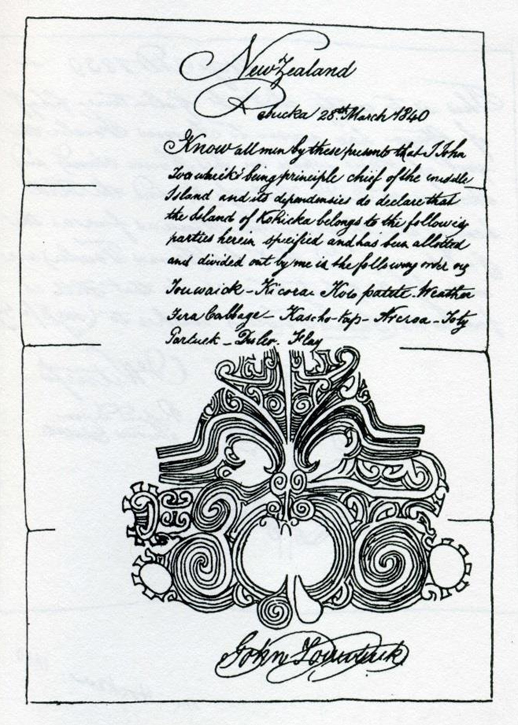 New Zealand
Rohicka 28th March 1840
Know all men by these presents that I John
Towwaick being principle chief of the middle
Island and its dependensies do declare that
the Island of Kohicka belongs to the following
parties herein specified and has been allotted
and divided out by me in the following order viz
Touwaick - Kicora - patate - Weather
Cabbage -
Partuck -
John Touwaick